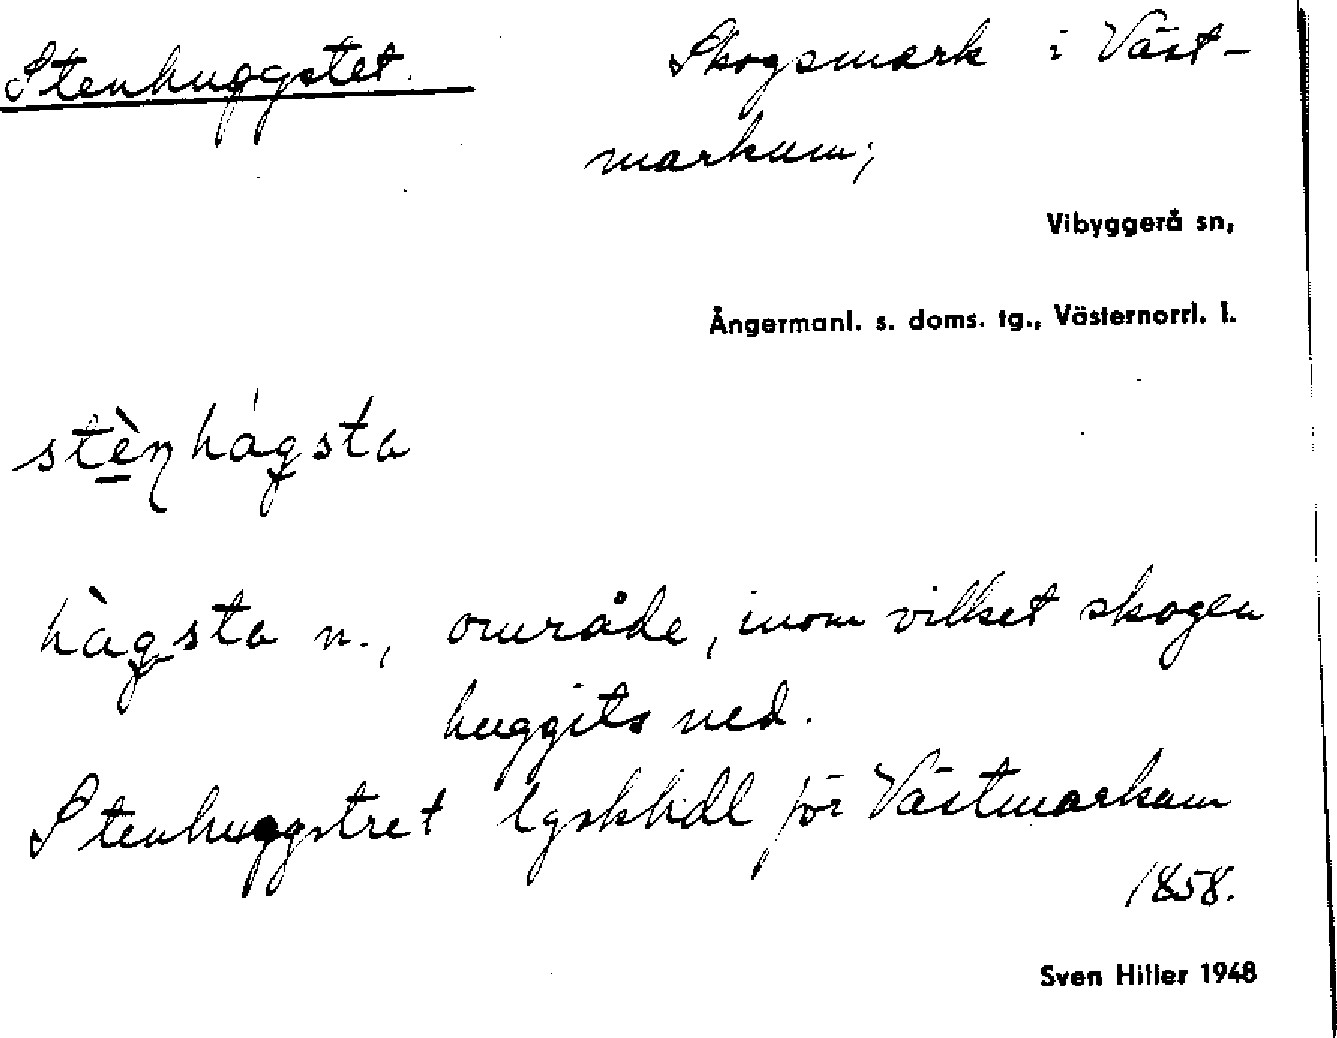 Stenhuggstet. Skogsmark i Väst-
markum;
Vibyggerå sn,
Ångermanl. s. doms. tg., Västernorrl. l.
stèn hágsta
hàgsta n., område, inom vilket skogen
huggits ned.
Stenhuggstret lgskhdl för Västmarkum
1858.
Sven Hiller 1948